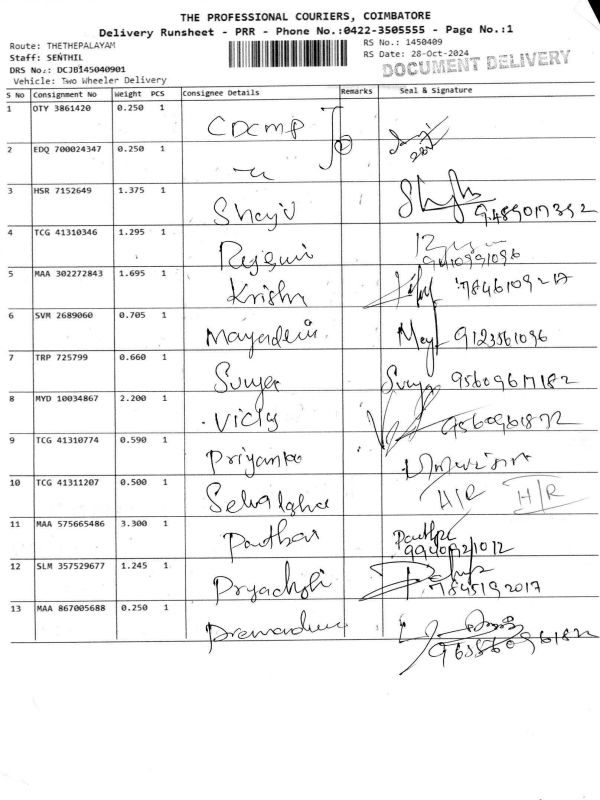 THE PROFESSIONAL COURIERS, COIMBATORE
Delivery Runsheet - PRR - Phone No.:0422-3505555 - Page No.:1
Route: THETHEPALAYAM RS No.: 1450409
Staff: SENTHIL RS Date: 28-Oct-2024
DRS No.: DCJB145040901 DOCUMENT DELIVERY
Vehicle: Two Wheeler Delivery
S No Consignment No Weight PCS Consignee Details Remarks Seal & Signature
1 OTY 3861420 0.250 1 CDCMP
2 EDQ 700024347 0.250 1
3 HSR 7152649 1.375 1 Shayil
4 TCG 41310346 1.295 1
5 MAA 302272843 1.695 1 Krishn 7846109217
6 SVM 2689060 0.705 1 Mayadevi 9123561096
7 TRP 725799 0.660 1 Surya Surya 95609617182
8 MYD 10034867 2.200 1 Vicky 9560961872
9 TCG 41310774 0.590 1 Priyanka
10 TCG 41311207 0.500 1 H/R H/R
11 MAA 575665486 3.300 1
12 SLM 357529677 1.245 1 7845192017
13 MAA 867005688 0.250 1